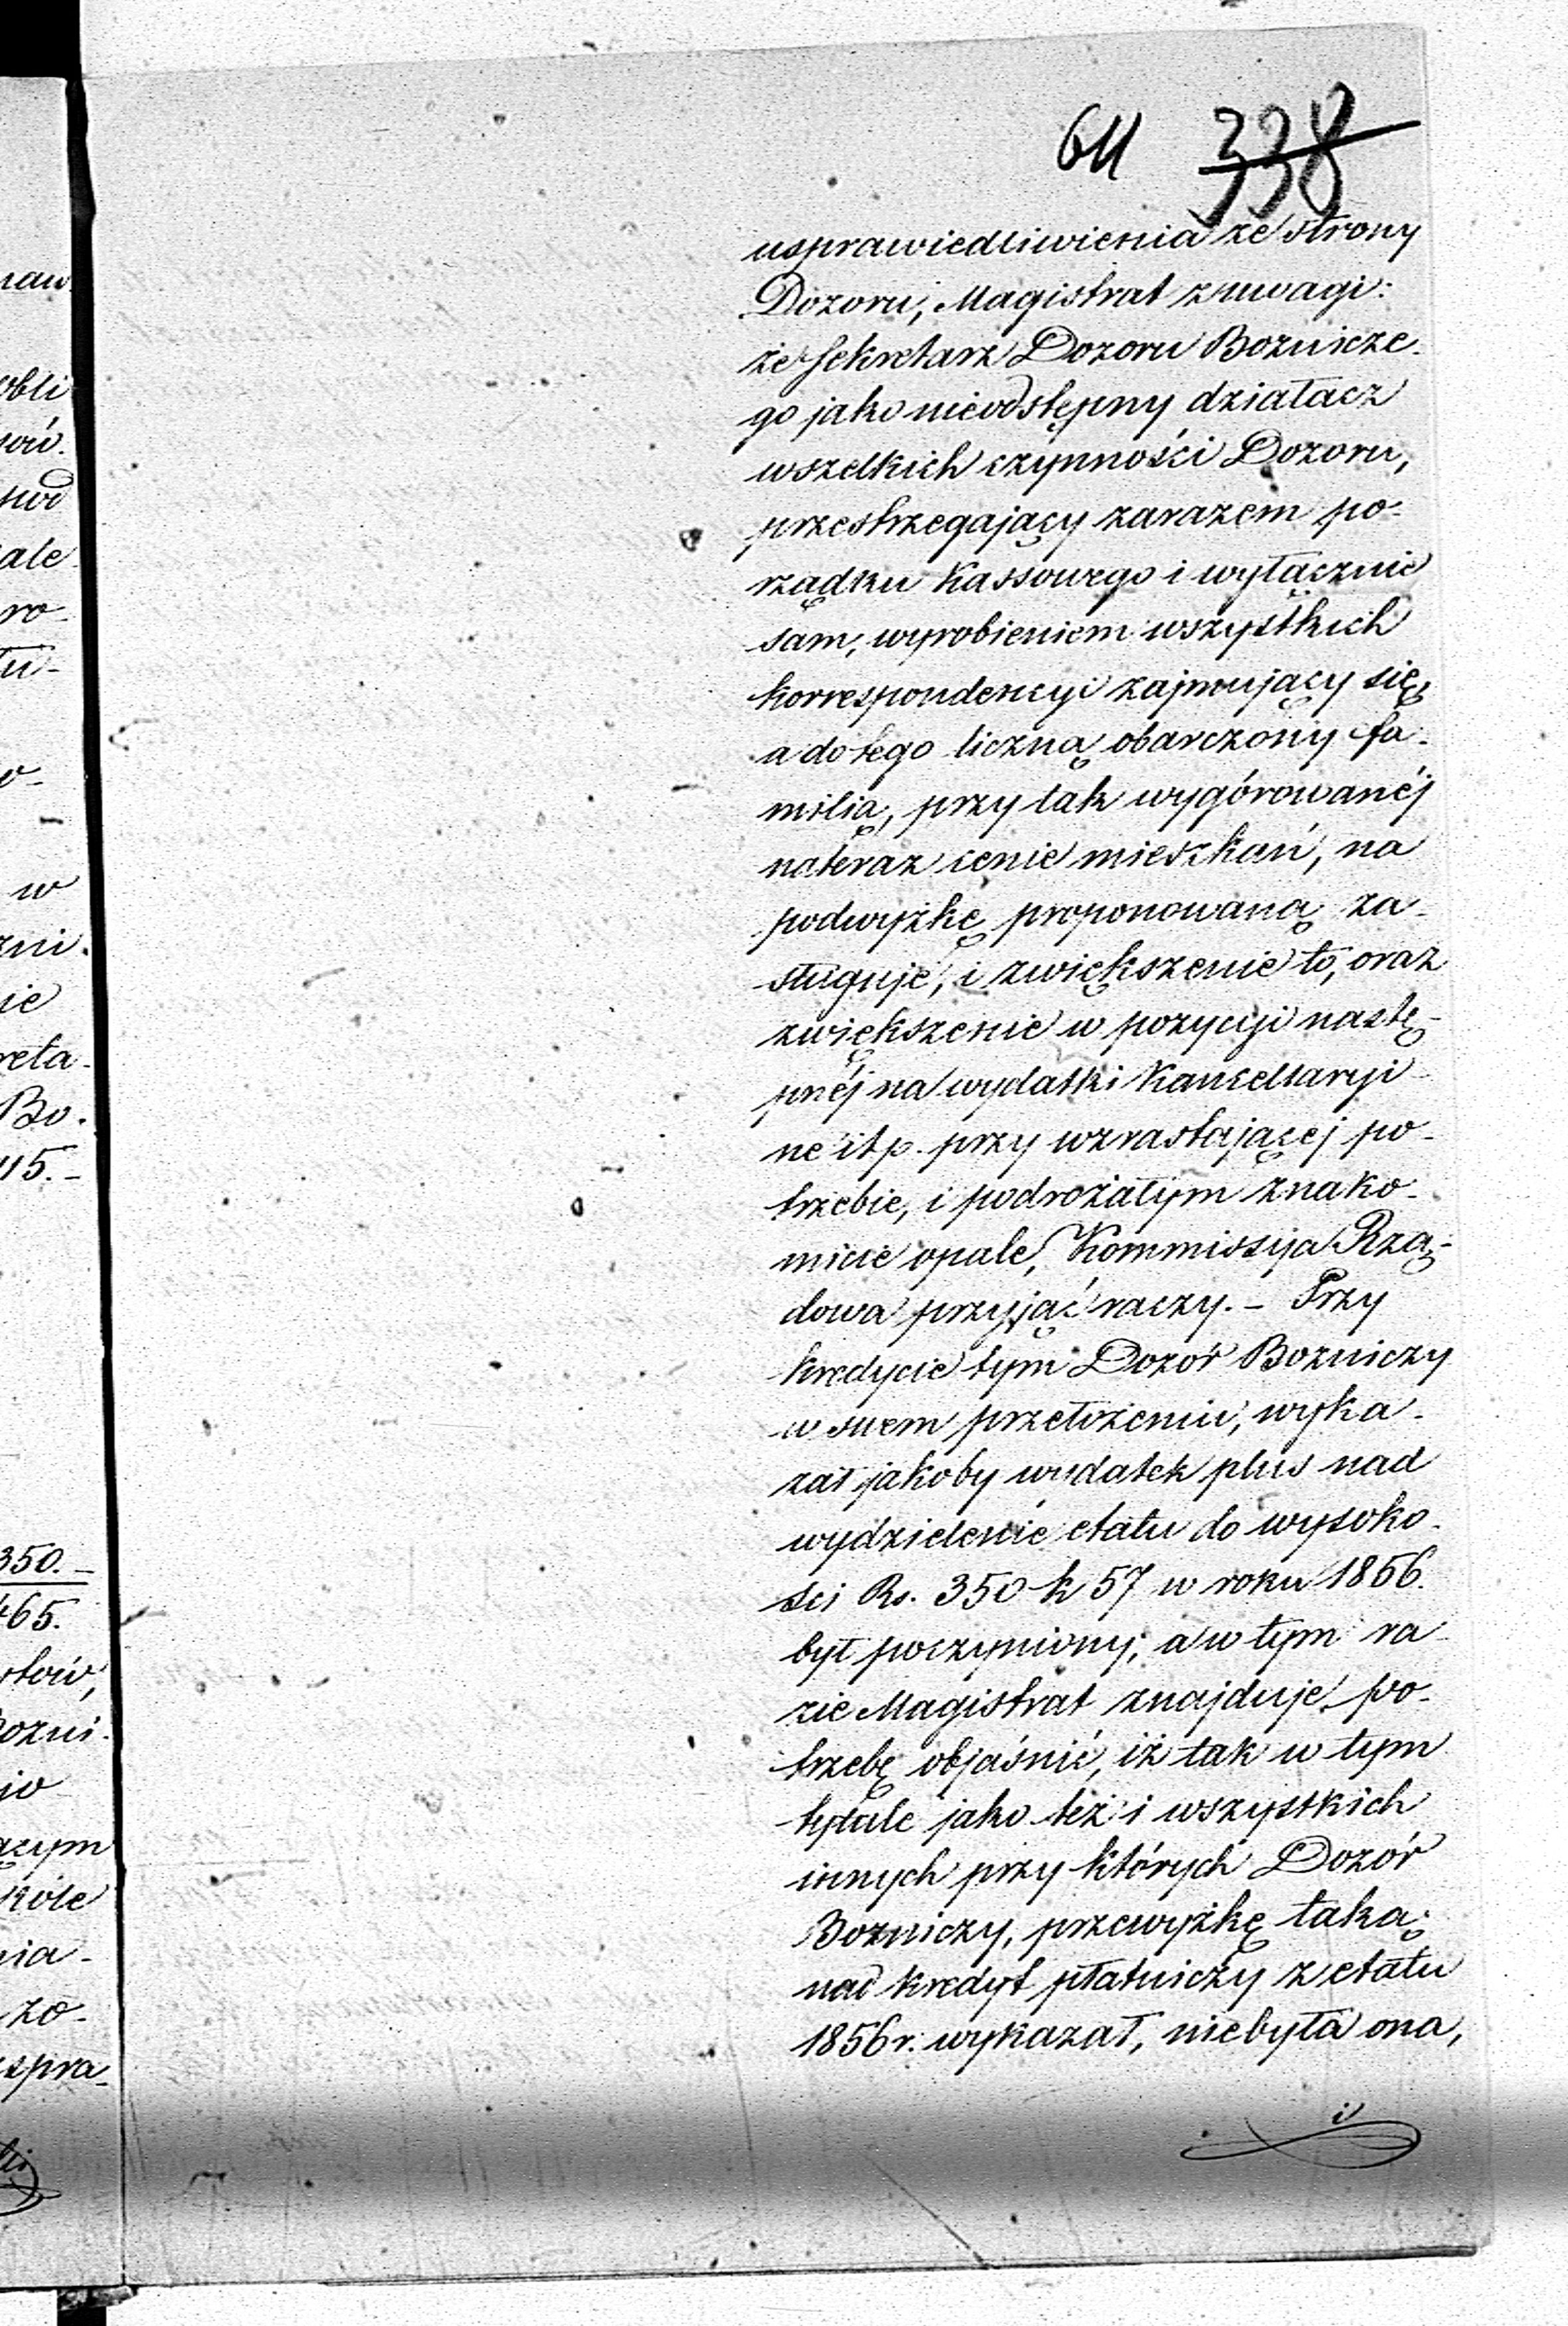 611 338
usprawiedliwienia ze strony
Dozoru, Magistrat z uwagi:
że Sekretarz Dozoru Boznicze-
go jako nieodstępny działacz
wszelkich czynności Dozoru,
przestrzegający zarazem po-
rządku Kassowego i wyłącznie
sam, wyrobieniem wszystkich
korrespondencyi zajmujący się,
a do tego liczną obarczony fa-
milią, przy tak wygórowanéj
nateraz cenie mieszkań, na
podwyżkę proponowaną za-
sługuje, i zwiększenie to, oraz
zwiększenie w pozycyi nastę-
pnéj na wydatki Kancellaryi-
ne itp. przy wzrastającej po-
trzebie, i podrożałym znako-
micie opale, Kommissyja Rzą-
dowa przyjąć raczy. – Przy
kredycie tym Dozór Bozniczy
w swem przełożeniu, wyka-
zał jakoby wydatek plus nad
wydzielenie etatu do wysoko-
ści Rs. 350 k 57 w roku 1856.
był poczyniony; a w tym ra-
zie Magistrat znajduje po-
trzebę objaśnić, iż tak w tym
tytule jako też i wszystkich
innych przy których Dozór
Bozniczy, przewyżkę taką
nad kredyt płatniczy z etatu
1856 r. wykazał, niebyła ona,
i
naw
obli
sów.
ale
ro-
tu-
w
zni.
ie
reta-
Bo.
115.-
350.-
465.
stów,
Bozni-
jo
ącym
kóle
nia-
zo-
spra-